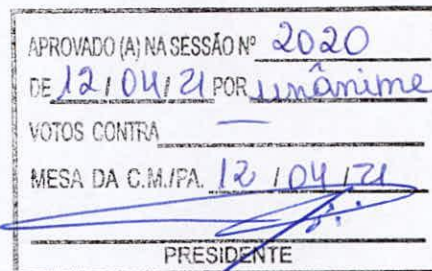 APROVADO (A) NA SESSÃO Nº 2020
DE 12/04/21 POR unânime
VOTOS CONTRA —
MESA DA C.M./PA. 12/04/21
PRESIDENTE